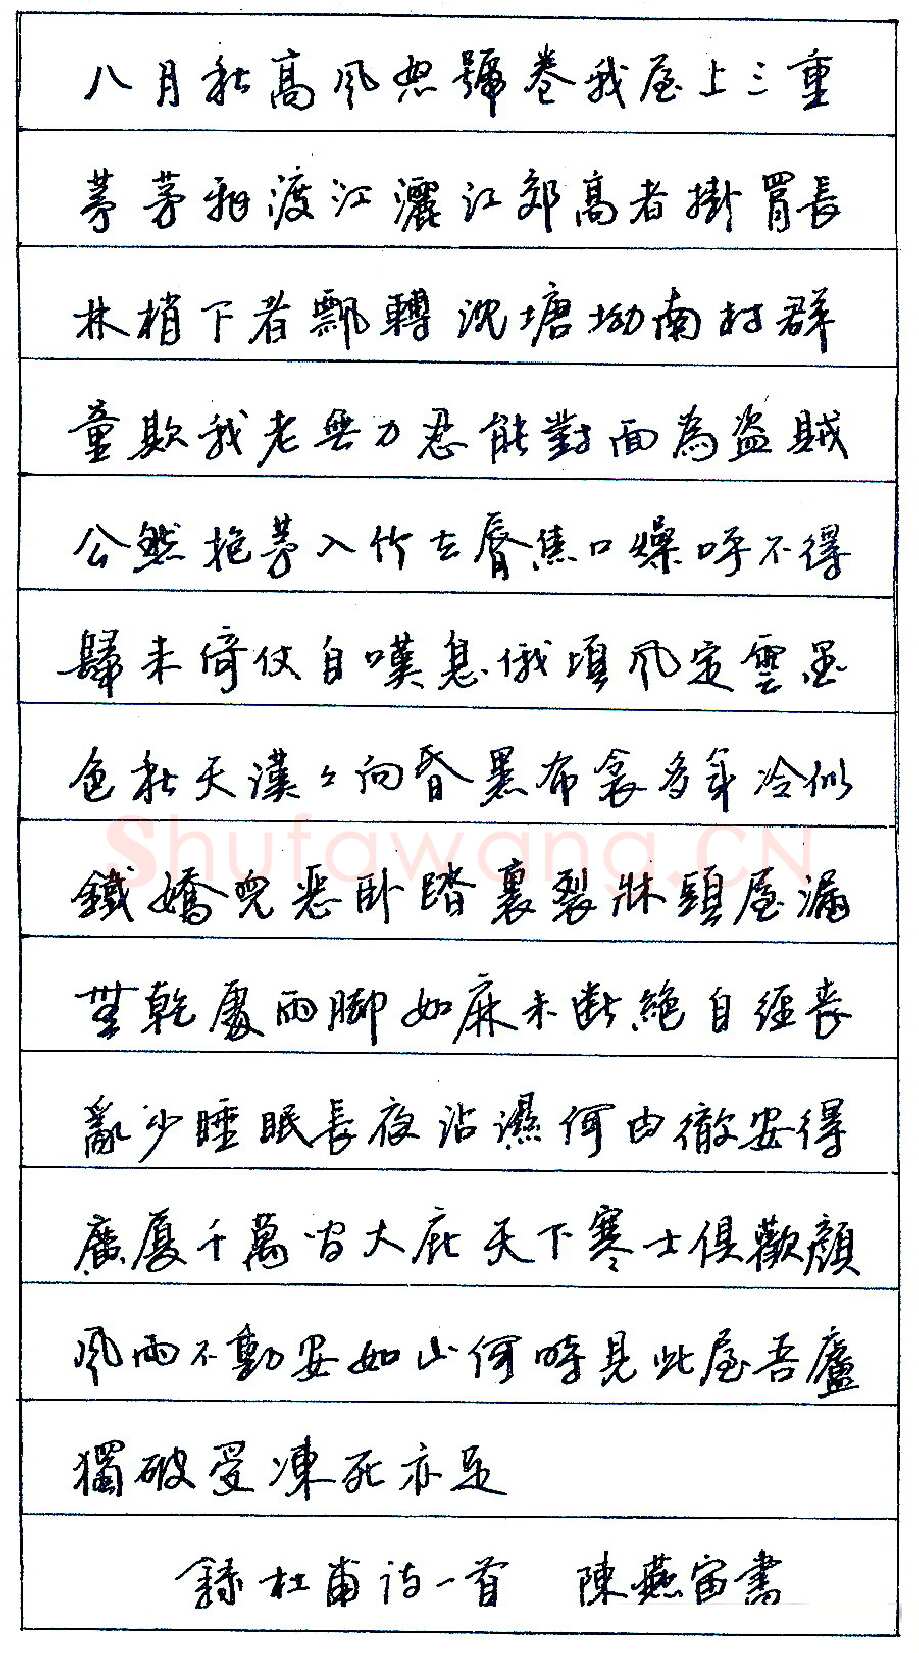 八月秋高風怒號卷我屋上三重
茅茅飛渡江灑江郊高者掛罥長
林梢下者飄轉沈塘坳南村群
童欺我老無力忍能對面為盜賊
公然抱茅入竹去唇焦口燥呼不得
歸來倚仗自嘆息俄頃風定雲墨
色秋天漠々向昏黑布衾多年冷似
鐵嬌兒惡卧踏裏裂牀頭屋漏
無乾處雨脚如麻未斷絕自經喪
亂少睡眠長夜沾濕何由徹安得
廣厦千萬間大庇天下寒士俱歡顏
風雨不動安如山何時見此屋吾廬
獨破受凍死亦足
錄杜甫詩一首 陳燕宙書
Shufawang.CN